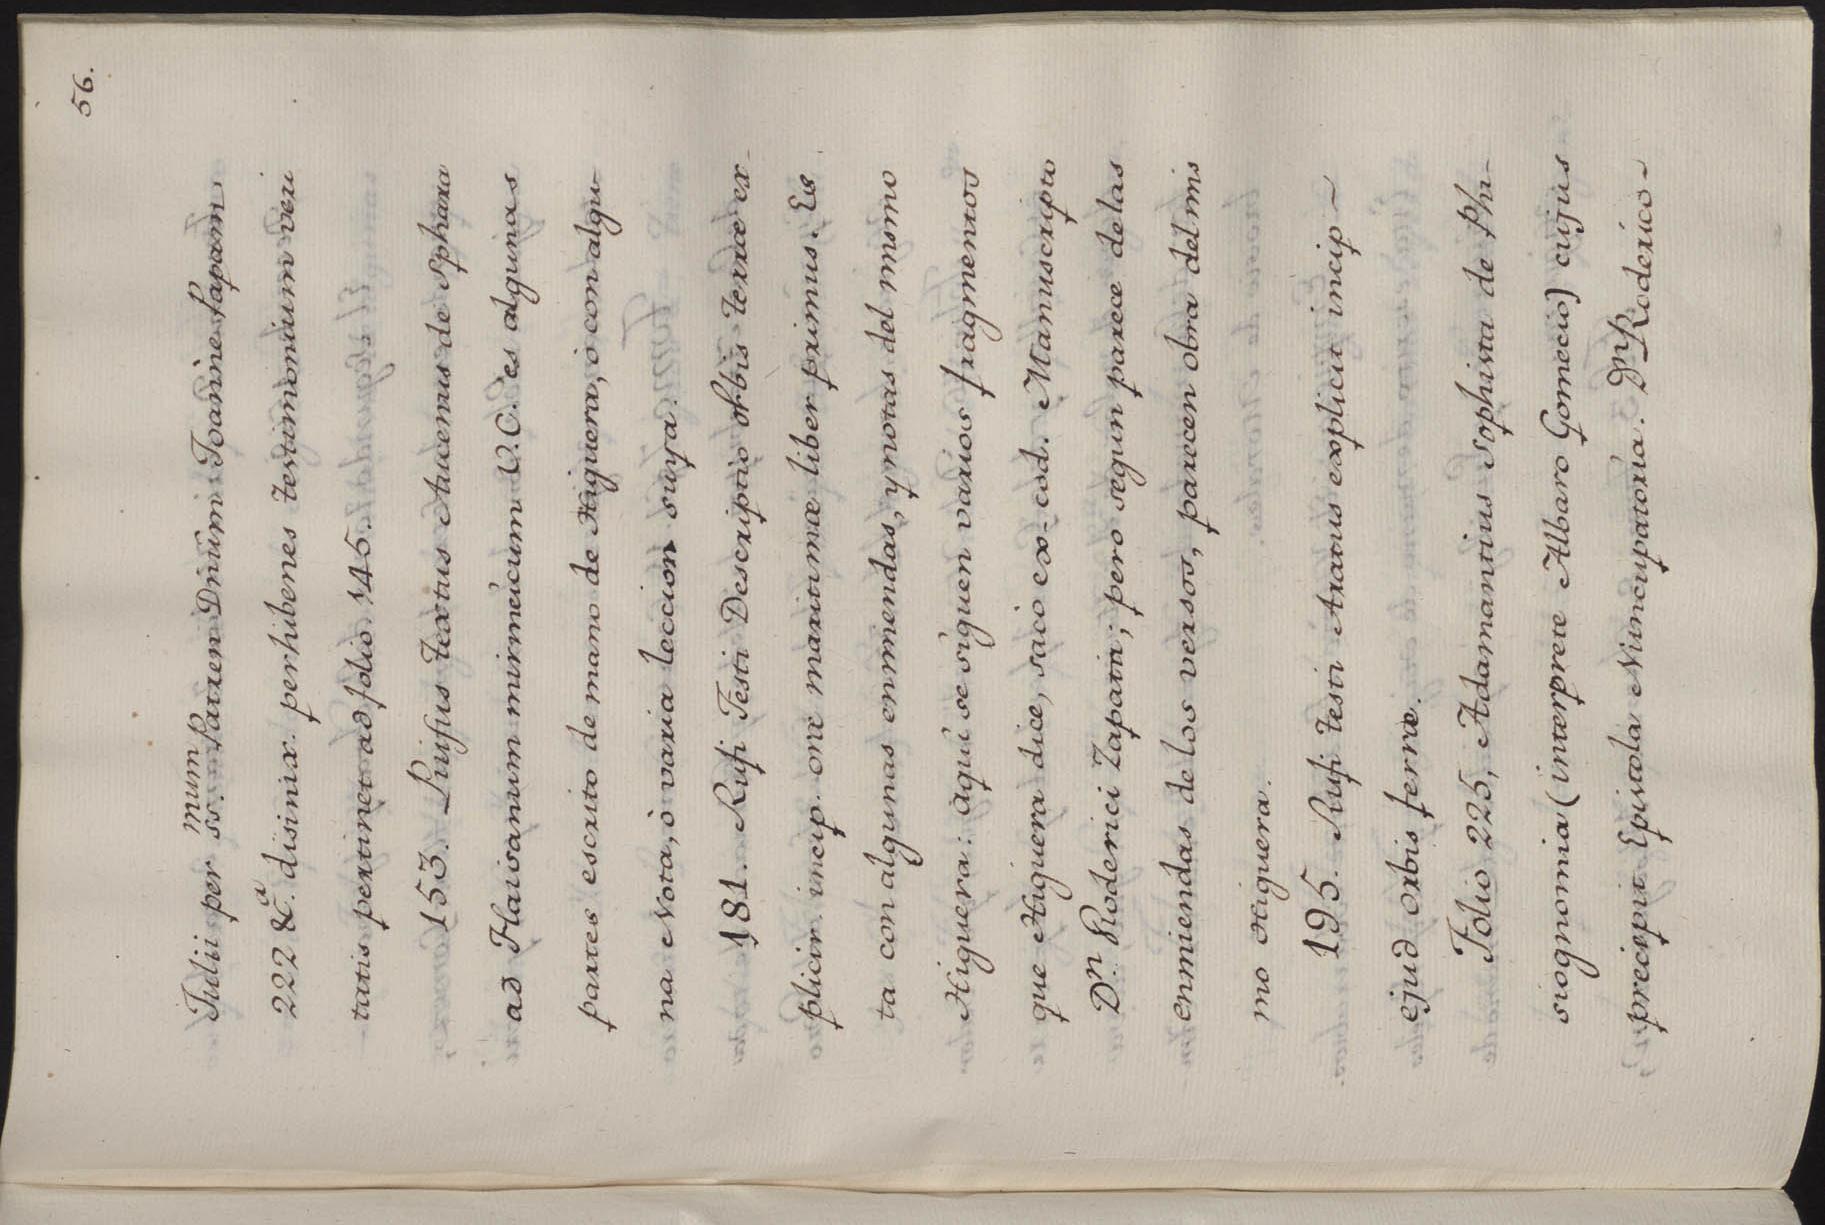 56.
Julii per ss.mum Patrem Dnūm Joanine Papam
222 &c.a disinit. perhibenes testimonium veri
tatis pertinet ad folio 145.
153. Rufus textus Avicenus de sphara
ad Flavianum mirmeicum V.C. es algunas
partes escrito de mano de Higuera, ò con algu-
na Nota, ò varia leccion suya.
181. Rufi Festi Descriptio orbis terræ ex-
plicit incip. oræ maritimæ liber primus. Es
ta con algunas enmiendas, y notas del mismo
Higuera: aqui se siguen varios fragmentos
que Higuera dice, saco ex-cod. Manuscripto
Dn. Roderici Zapata; pero segun parece de las
enmiendas de los versos, parecen obra del mis
mo Higuera.
195. Rufi Festi Aratus explicit incip ~
ejud orbis ferræ.
Folio 225, Adamantius Sophista de Phi-
siognomia (interprete Albaro Gomecio) cujus
precispit Epistola Nuncupatoria. Dn. Roderico ~